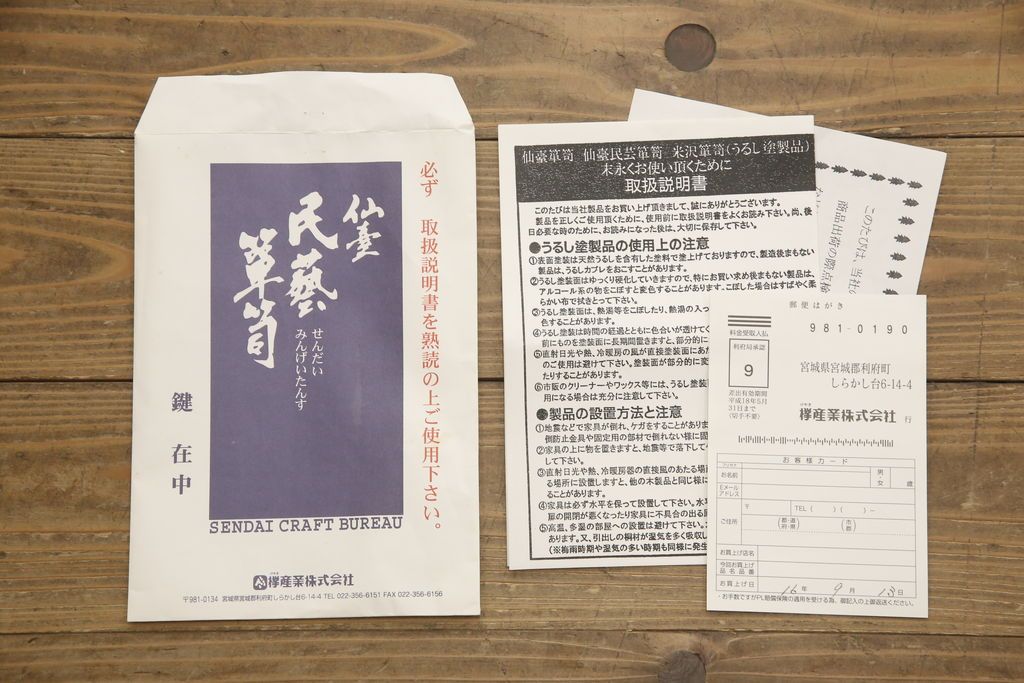 必ず 取扱説明書を熟読の上ご使用下さい。
仙臺
民藝
箪笥
せんだい
みんげいたんす
鍵在中
SENDAI CRAFT BUREAU
欅産業株式会社
〒981-0134 宮城県宮城郡利府町しらかし台6-14-4 TEL 022-356-6151 FAX 022-356-6156
仙臺箪笥 仙臺民芸箪笥 米沢箪笥(うるし塗製品)
末永くお使い頂くために
取扱説明書
このたびは当社製品をお買い上げ頂きまして、誠にありがとうございます。
製品を正しくご使用頂くために、使用前に取扱説明書をよくお読み下さい。尚、後
日必要な時のために、お読みになった後は、大切に保存して下さい。
●うるし塗製品の使用上の注意
①表面塗装は天然うるしを含有した塗料で塗上げておりますので、製造後まもない
製品は、うるしカブレをおこすことがあります。
②うるし塗装面はゆっくり硬化していきますので、特にお買い求め後まもない製品は、
アルコール系の物をこぼすと変色することがあります。こぼした場合はすばやく柔
らかい布で拭きとって下さい。
③うるし塗装面は、熱湯等をこぼしたり、熱湯の入っ
色することがあります。
④うるし塗装は時間の経過とともに色合いが透けてく
前にものを塗装面に長期間置きますと、部分的に
⑤直射日光や熱、冷暖房の風が直接塗装面にあた
のご使用は避けて下さい。塗装面が部分的に変
たりすることがあります。
⑥市販のクリーナーやワックス等には、うるし塗装
用になる場合は充分に注意して下さい。
●製品の設置方法と注意
①地震などで家具が倒れ、ケガをすることがありま
倒防止金具や固定用の部材で倒れない様に固
②家具の上に物を置きますと、地震等で落下して
して下さい。
③直射日光や熱、冷暖房器の直接風のあたる場
る場所に設置しますと、他の木製品と同じ様に
ることがあります。
④家具は必ず水平を保って設置して下さい。水平
扉の開閉が悪くなったり家具に不具合の出る
⑤高温、多湿の部屋への設置は避けて下さい。
あります。又、引出しの桐材が湿気を多く吸収し
(※梅雨時期や湿気の多い時期も同様に発生
このたびは、当社
商品出荷の際点検
郵便はがき
981-0190
料金受取人払
利府局承認
9
差出有効期間
平成18年5月
31日まで
(切手不要)
宮城県宮城郡利府町
しらかし台6-14-4
欅産業株式会社 行
お客様カード
フリガナ
お名前
男・女 歳
Eメール
アドレス
ご住所
〒 TEL( )( )−
都・道
府・県
市
郡
お買上げ店名
今回お買上げ
品名品番
お買上げ日 16年 9月 13日
・お手数ですがPL賠償保険の適用を受ける為、御記入の上御返送ください。